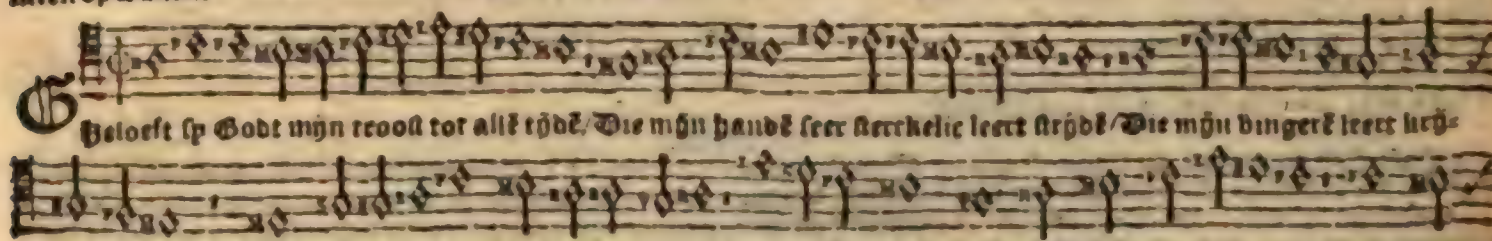 Geloeft sy Godt mijn troost tot allē tydē/ Die mijn handē seer sterckelic leert strydē/ Die mijn vingerē leert krij=